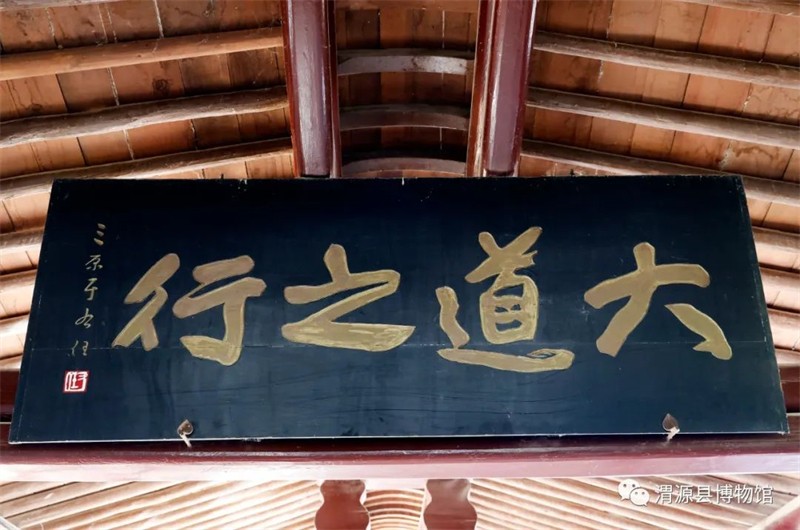 大道之行
三原于右任
渭源县博物馆